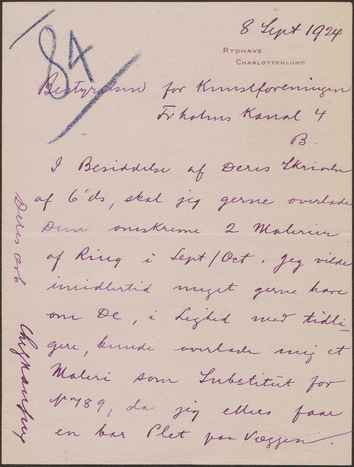 84
8 Sept 1924
RYDHAVE
CHARLOTTENLUND
Bestyrelsen for Kunstforeningen
Frholms Kanal 4
B.
I Besiddelse af Deres Skrivelse
af 6' ds, skal jeg gerne overlade
Dem omskrevne 2 Malerier
af Ring i Sept/Oct. Jeg vilde
imidlertid meget gerne have
om De, i Lighed med tidli-
gere, kunde overlade mig et
Maleri som Substitut for
No 789, da jeg ellers faar
en bar Plet paa Væggen.
Deres erb